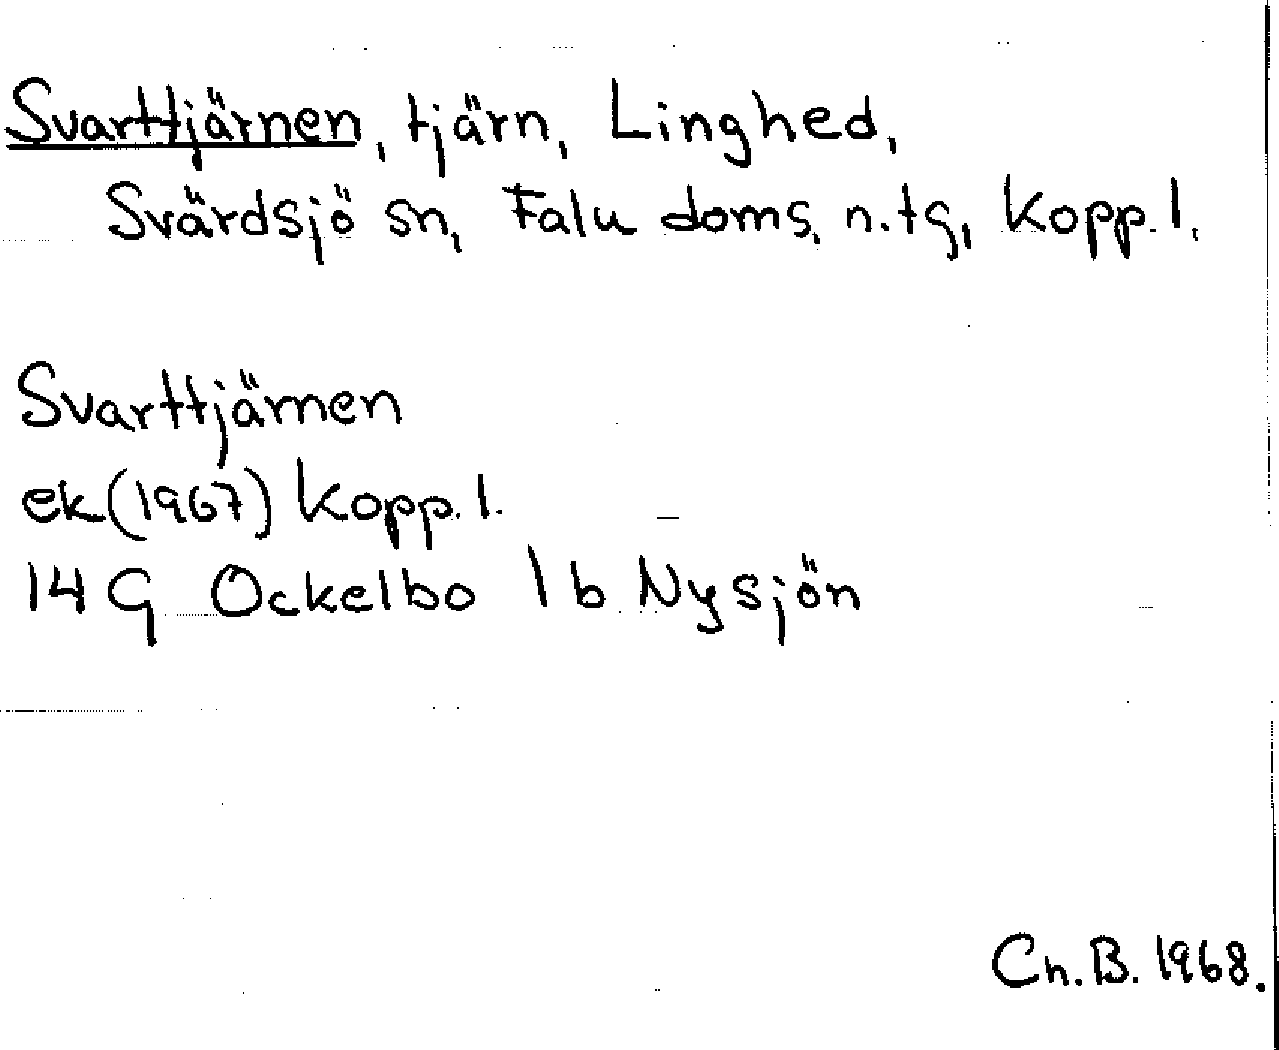 Svarttjärnen, tjärn, Linghed,
Svärdsjö sn, Falu doms. n.tg, Kopp. l.
Svarttjärnen
ek (1967) Kopp. l.
14 G Ockelbo 1 b Nysjön
Ch. B. 1968.